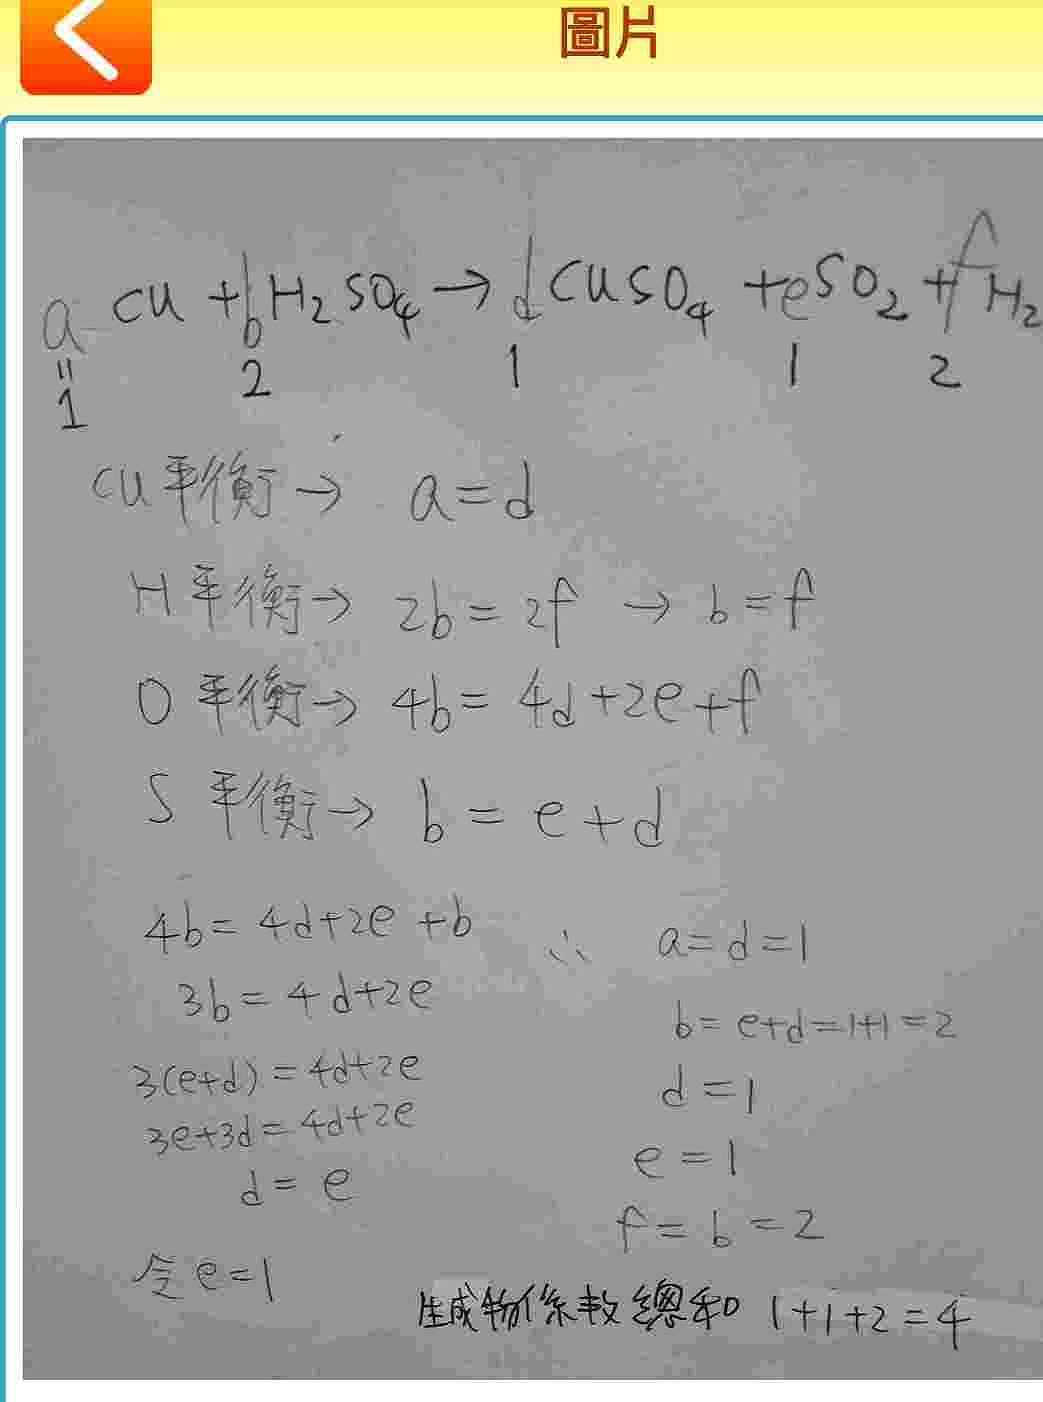 圖片
a Cu + b H₂SO₄ → d CuSO₄ + e SO₂ + f H₂
॥
1 2 1 1 2
Cu平衡→ a=d
H平衡→ 2b=2f → b=f
O平衡→ 4b=4d+2e+f
S平衡→ b=e+d
4b=4d+2e+b
3b=4d+2e
3(e+d)=4d+2e
3e+3d=4d+2e
d=e
令e=1
∴ a=d=1
b=e+d=1+1=2
d=1
e=1
f=b=2
生成物係數總和 1+1+2=4